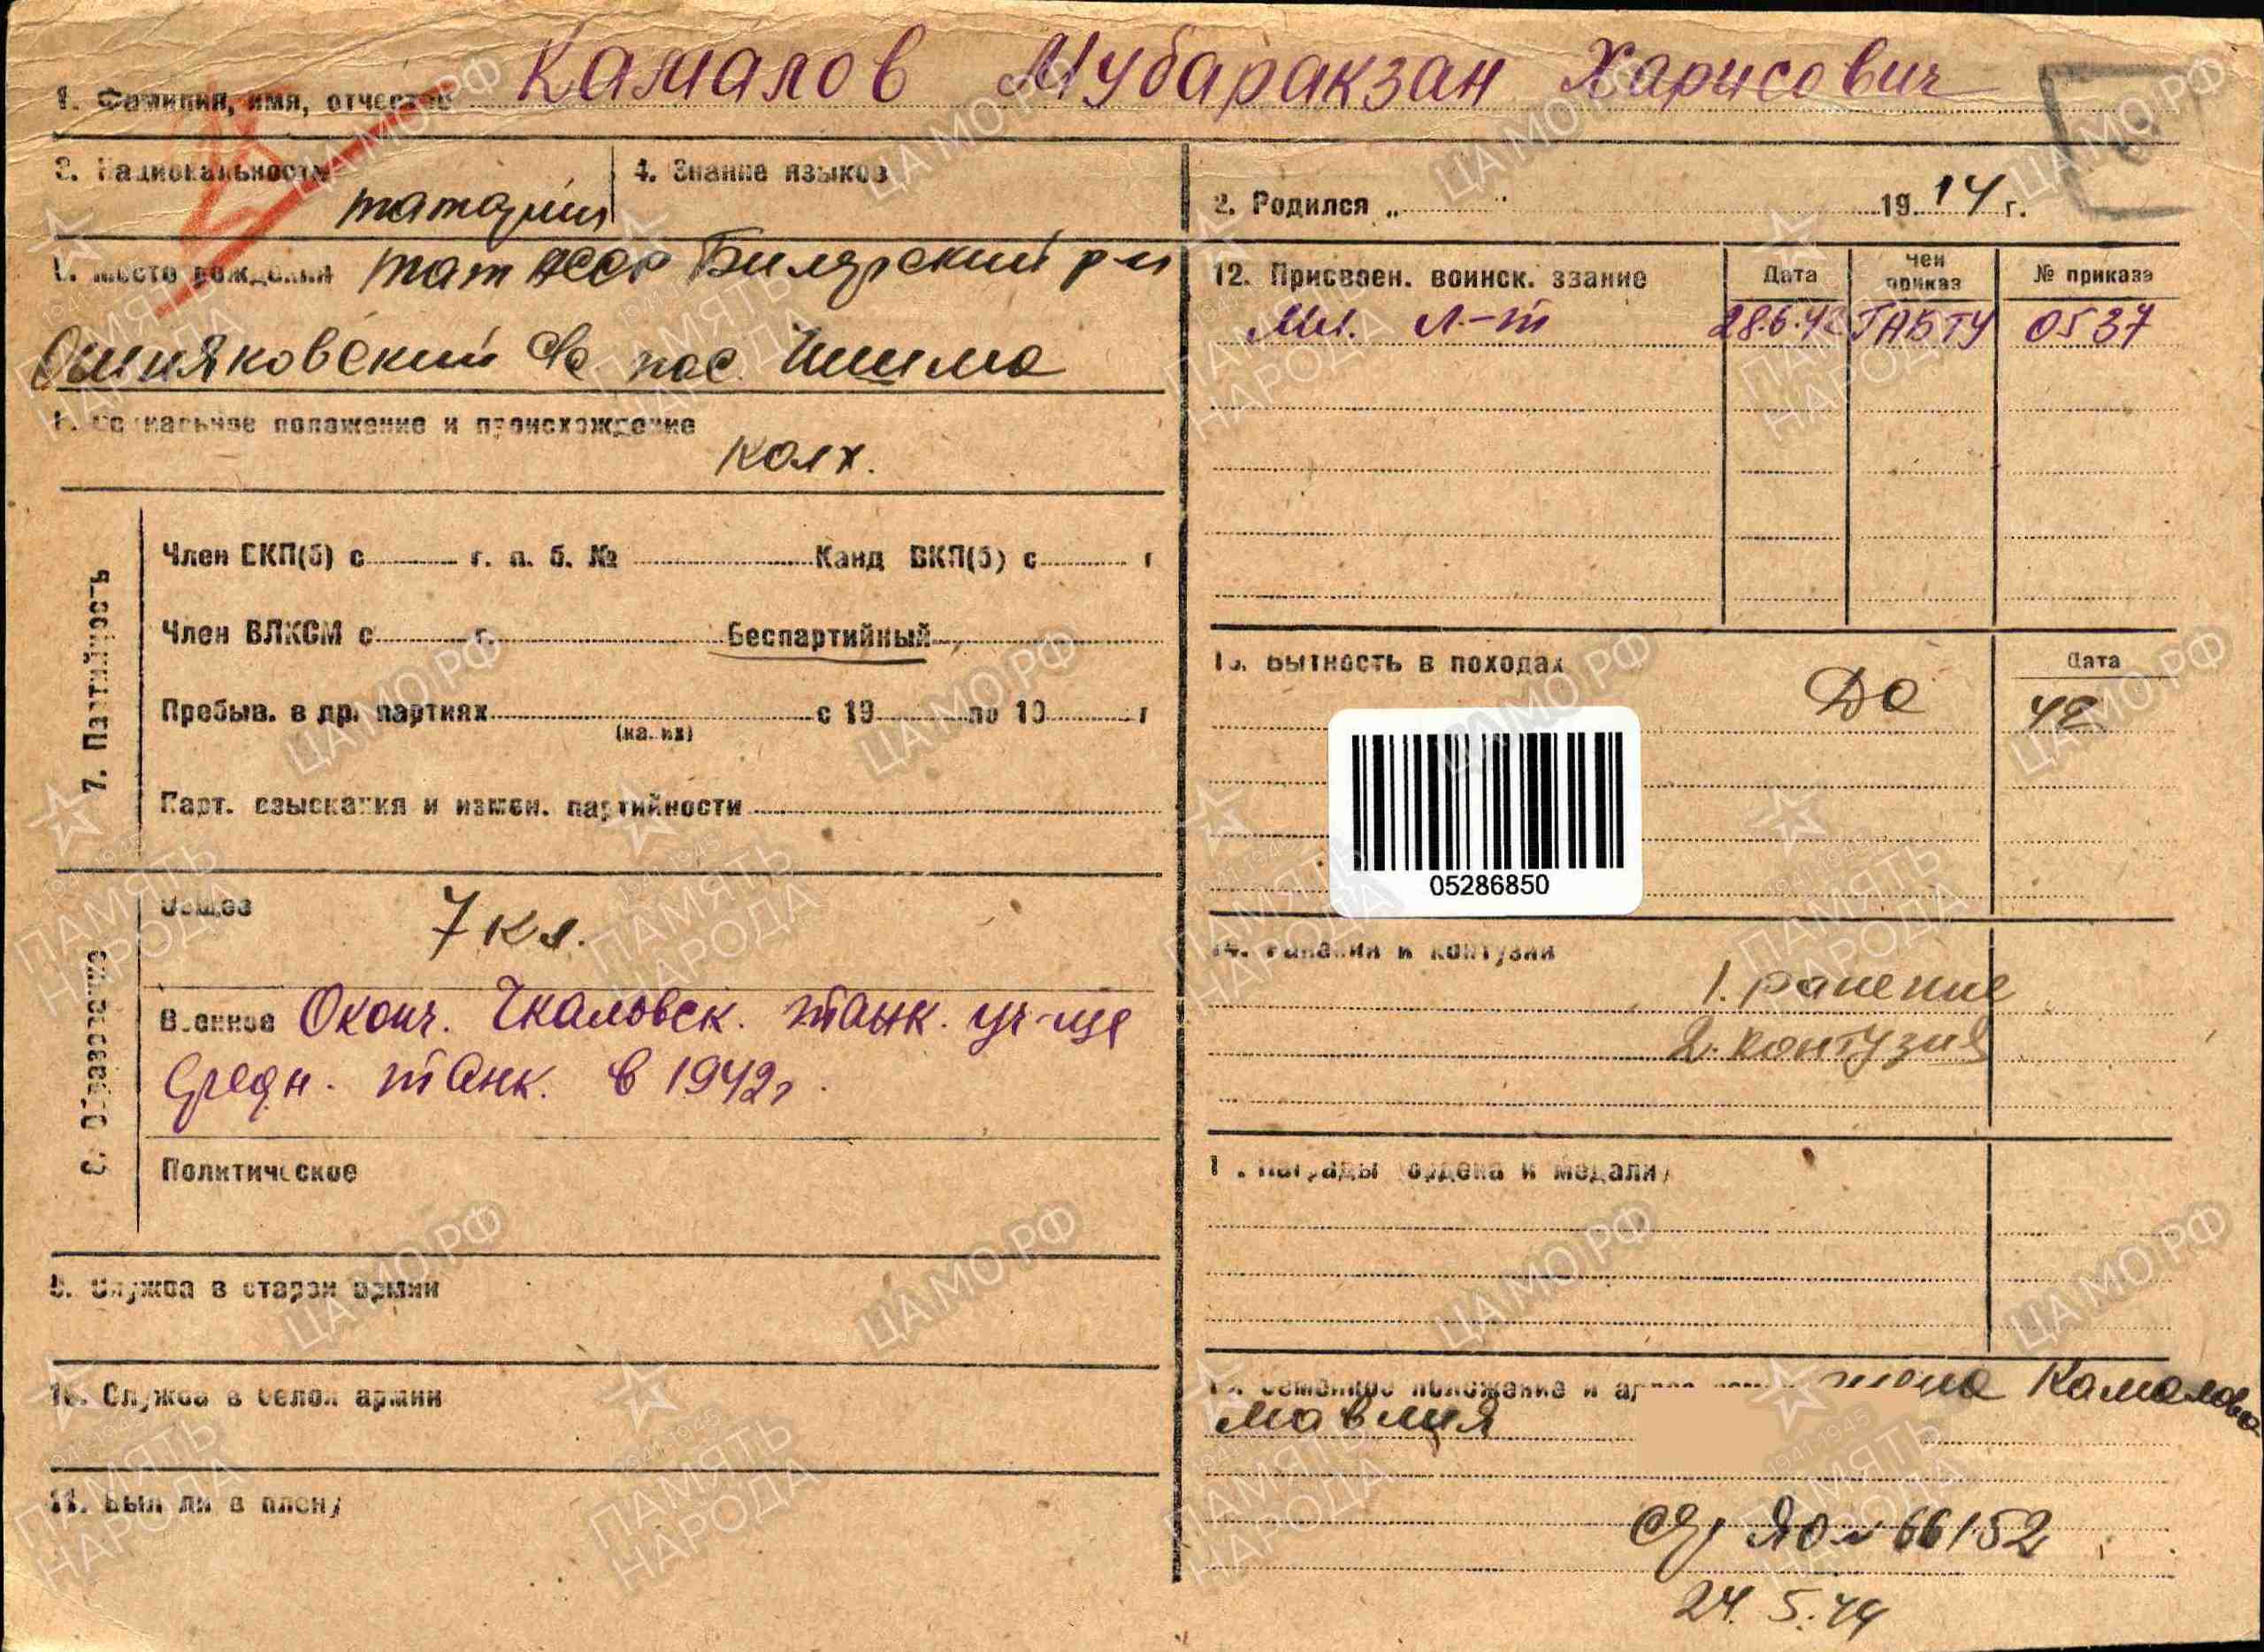 1. Фамилия, имя, отчество Камалов Мубаракзан Харисович
3. Национальность татарин
4. Знание языков
2. Родился „ " 1914 г.
5. Место рождения тат АССР Билярский р-н
с/с пос. Чишма
6. Социальное положение и происхождение
колх.
7. Партийность
Член ВКП(б) с г. п. б. № Канд ВКП(б) с г
Член ВЛКСМ с г. Беспартийный
Пребыв. в др. партиях с 19 по 19 г
(каких)
Парт. взыскания и измен. партийности
8. Образование
Общее 7 кл.
Военное Оконч. Чкаловск. танк. уч-ще
средн. танк. в 1942г.
Политическое
9. Служба в старой армии
10. Служба в белой армии
11. Был ли в плену
12. Присвоен. воинск. звание Дата Чей приказ № приказа
Мл. л-т 28.6.42 ГАБТУ 0537
13. Бытность в походах Дата
ДА 42
05286850
14. Ранения и контузии
1. ранение
2. контузия
15. Награды (ордена и медали)
16. Семейное положение и жена Камалова
Мавлия
66152
24.5.44
ЦАМО.РФ
1941-1945
ПАМЯТЬ
НАРОДА